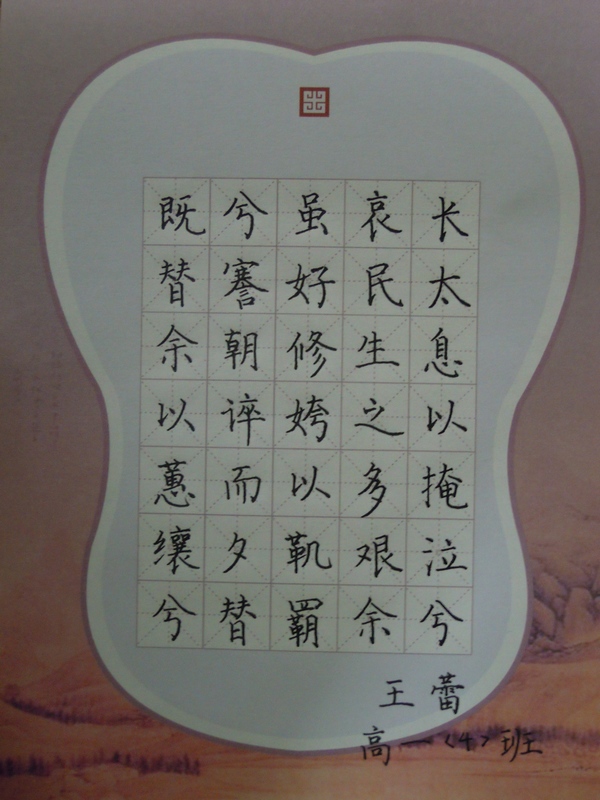 长太息以掩泣兮
哀民生之多艰余
虽好修姱以鞿羁
兮謇朝谇而夕替
既替余以蕙纕兮
王蕾
高一〈4〉班